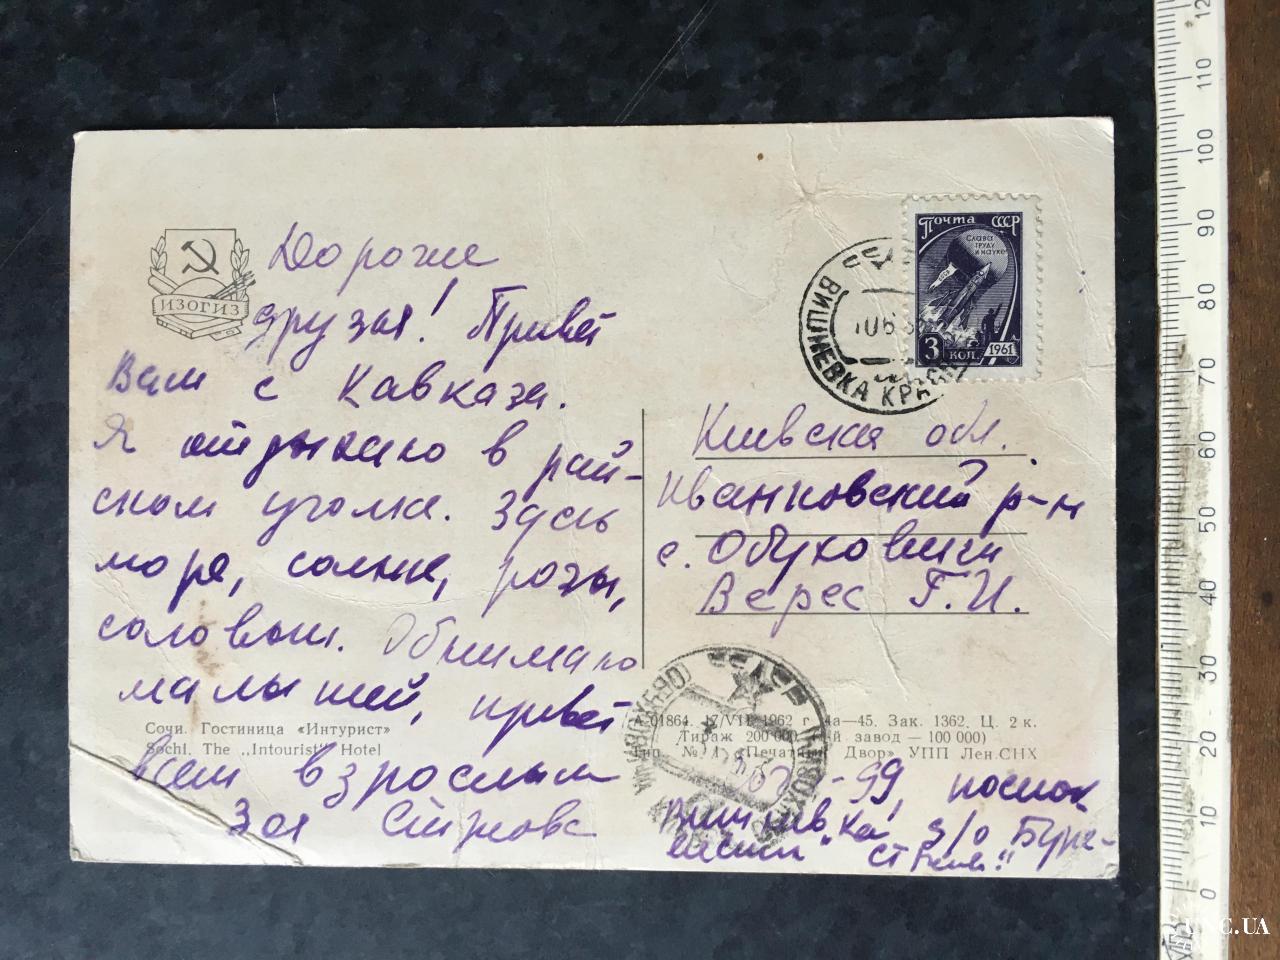 ИЗОГИЗ
Дорогие
друзья! Привет
Вам с Кавказа.
Я отдыхаю в рай-
ском уголке. Здесь
море, солнце, розы,
соловьи. Обнимаю
малышей, привет
всем взрослым
Зоя
Сочи. Гостиница «Интурист»
Sochi. The „Intourist" Hotel
Почта СССР
Слава
труду
и науке
3 коп. 1961
ВИШНЕВКА КРАСН
Киевская обл.
Иванковский р-н
с. Обуховичи
Верес Г. И.
А-01864. 17/VII 1962 г. 4а—45. Зак. 1362. Ц. 2 к.
Тираж 200 000 завод — 100 000)
Тип. № 1 «Печатный Двор» УПП Лен.СНХ
99, поселок
Вишневка, д/о
120
110
100
90
80
70
60
50
40
30
20
10
0
UNC.UA